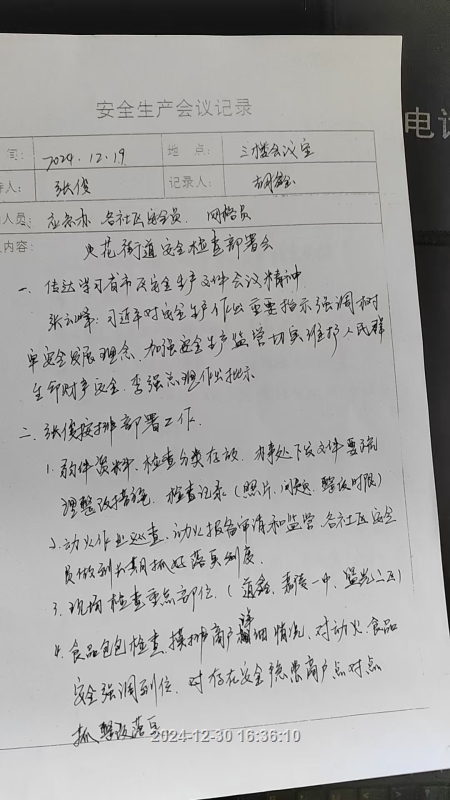 安全生产会议记录
电话
间: 2024.12.19 地 点: 三楼会议室
持人: 张俊 记录人: 胡鑫
人员: 应急办 各社区安全员、网格员
内容: 火花街道安全检查部署会
一、传达学习省市区安全生产文件会议精神
张云峰: 习近平对安全生产作出重要指示强调树
牢安全发展理念、加强安全生产监管切实维护人民群
生命财产安全. 李强总理作出批示
二、张俊安排部署工作.
1. 软件资料、检查分类存放. 办事处下发文件要
理整改措施、检查记录(照片、问题、整改时限)
2. 动火作业巡查、动火报备申请和监管 各社区安全
员做到 抓好落实制度.
3. 现场检查重点部位. (
4. 食品包包检查、摸排商户详细情况、对动火、食品
安全强调到位. 对存在安全隐患商户点对点
抓整改落实
2024-12-30 16:36:10